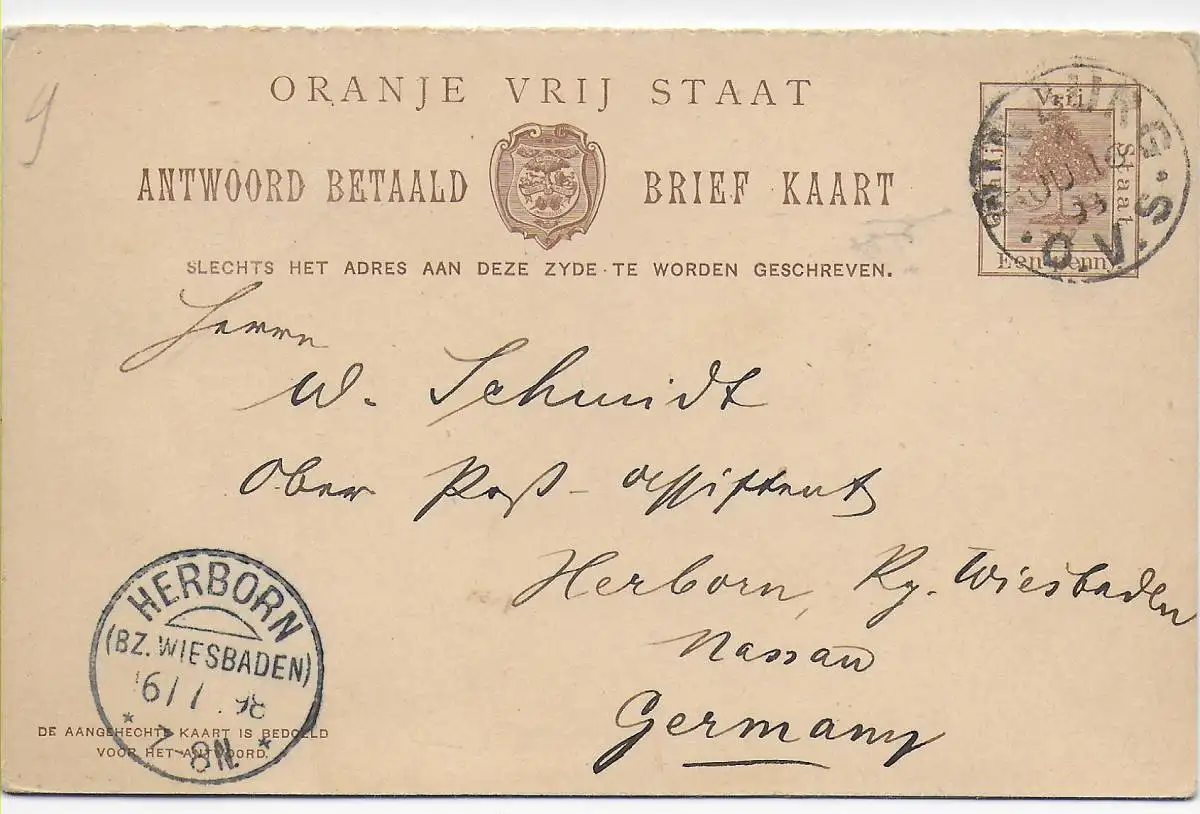 ORANJE VRIJ STAAT
ANTWOORD BETAALD BRIEF KAART
SLECHTS HET ADRES AAN DEZE ZYDE TE WORDEN GESCHREVEN.
Vrij
Oranje
Staat
Een Penny.
O.V.S.
Herrn
W. Schmidt
Ober Post-Assistent
Herborn, Rg. Wiesbaden
Nassau
Germany
HERBORN
(BZ. WIESBADEN)
7-8N.
DE AANGEHECHTE KAART IS BEDOELD
VOOR HET ANTWOORD.